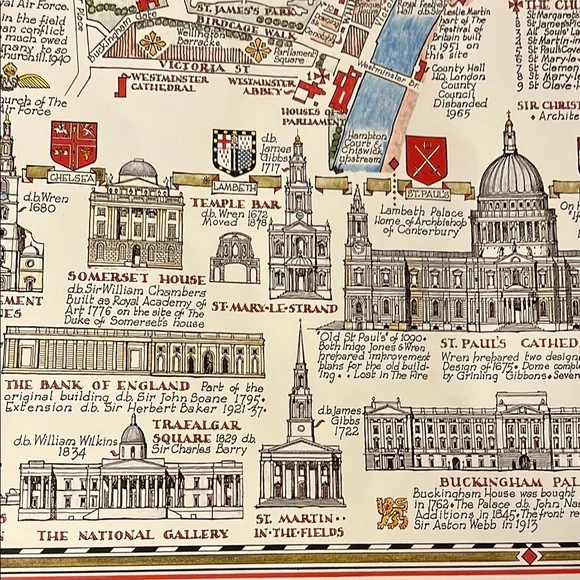 al Air Force.
In the field
an conflict
much owed
many to so
Churchill.1940
urch of The
Air Force
Place
Buckingham Gate
ST. JAMES'S PARK
BIRDCAGE WALK
Wellington
Barracks
Parliament
Square
VICTORIA ST
WESTMINSTER
CATHEDRAL
WESTMINSTER
ABBEY
HOUSES OF
PARLIAMENT
Westminster Br.
Royal Festival
Hall d.b. Leslie Martin
part of The
Festival of
Britain built
in 1951 on
this site
County Hall
HQ. London
County
Council
Disbanded
1965
THE CHU
St Margarets
All Souls' La
St Martin-in
St Paul Cove
St Mary-le
St Clement
St Mary
St Clave
SIR CHRIST
Archite
Hampton
Court &
Chiswick
upstream
CHELSEA
LAMBETH
ST. PAUL'S
d.b. Wren
1680
d.b.
James
Gibbs
1717
TEMPLE BAR
d.b. Wren 1672
Moved 1878
Lambeth Palace
Home of Archbishop
of Canterbury
On h
EMENT
NES
SOMERSET HOUSE
d.b. Sir William Chambers
Built as Royal Academy of
Art 1776 on the site of The
Duke of Somerset's house
ST·MARY·LE·STRAND
Old St Paul's of 1090.
Both Inigo Jones & Wren
prepared improvement
plans for the old build-
ing.. Lost in The Fire
ST. PAUL'S CATHED
Wren prepared two design
Design of 1675. Dome comple
by Grinling Gibbons. Seven
THE BANK OF ENGLAND Part of the
original building d.b. Sir John Soane 1795.
Extension d.b. Sir Herbert Baker 1921-37.
d.b. William Wilkins
1834
TRAFALGAR
SQUARE 1829 d.b.
Sir Charles Barry
THE NATIONAL GALLERY
d.b. James
Gibbs
1722
ST. MARTIN··
IN·THE·FIELDS
BUCKINGHAM PAL
Buckingham House was bought
in 1762. The Palace d.b. John Nas
Additions in 1845. The front re
Sir Aston Webb in 1913